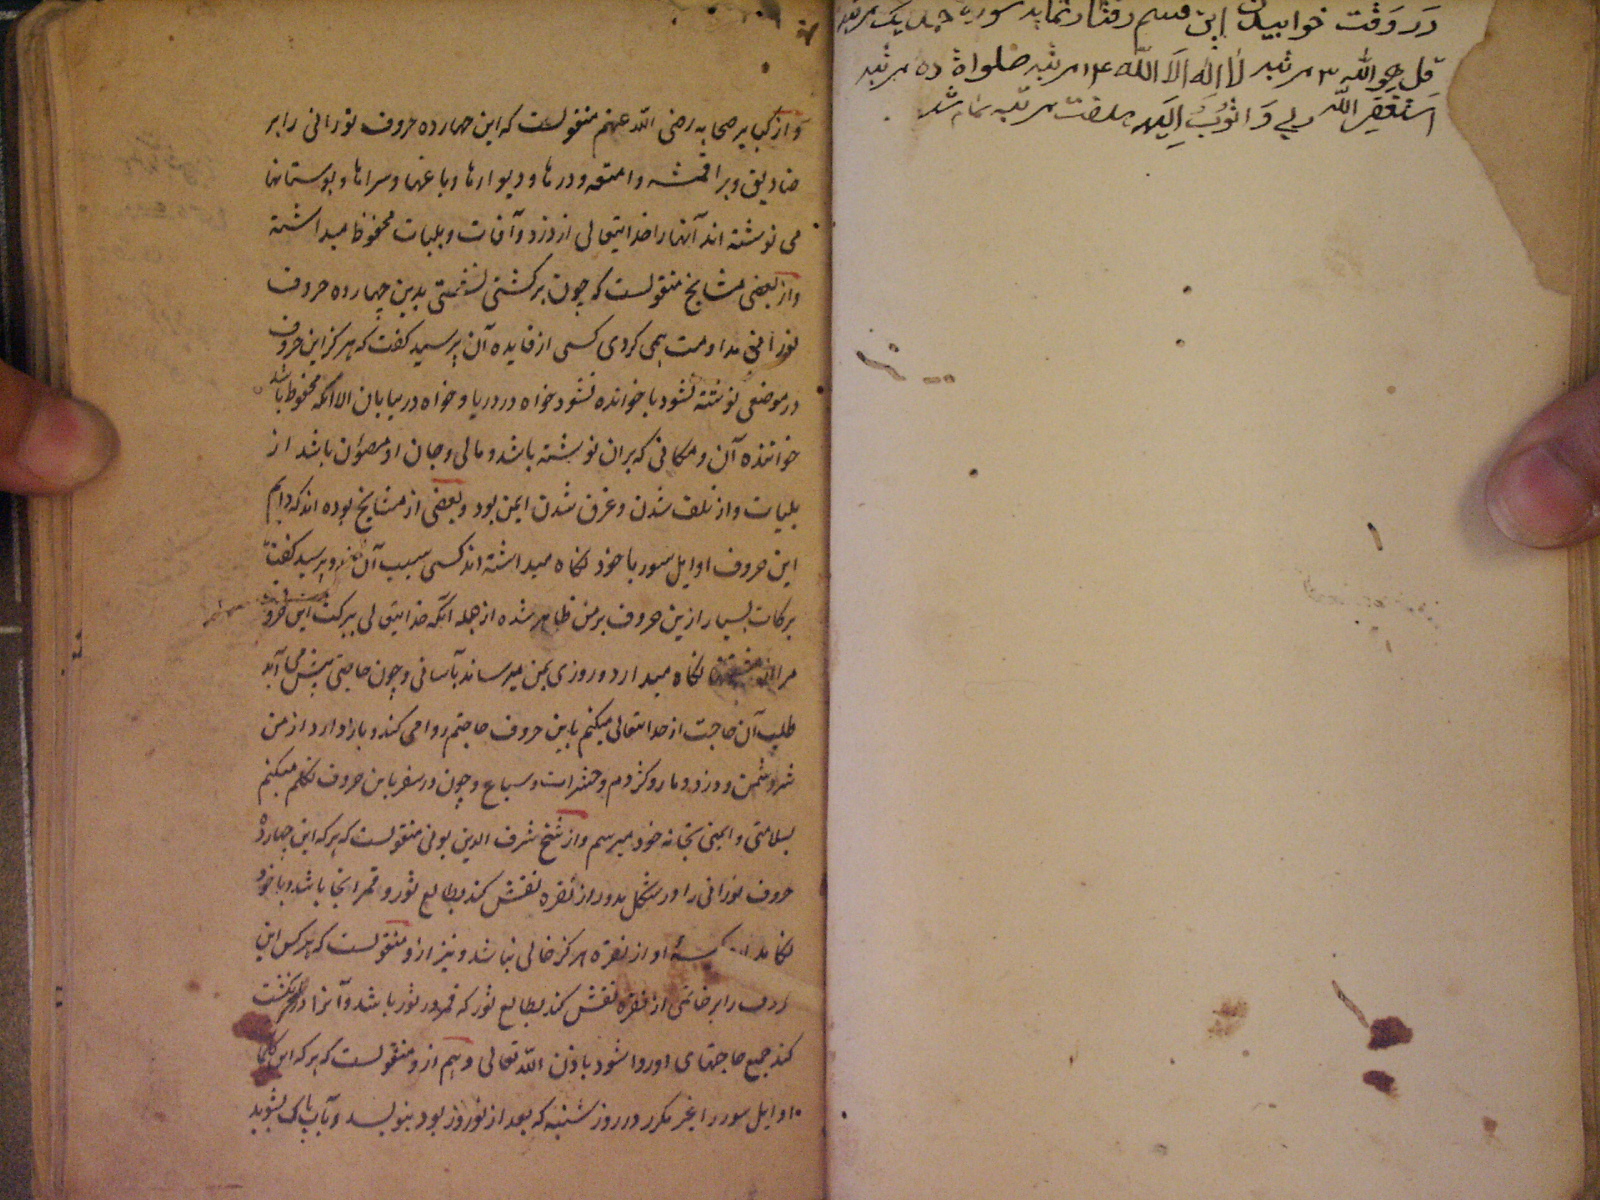 در وقت خوابیدن این قسم رفتار نماید سوره یک مرتبه
قل هو الله ۳ مرتبه لا اله الا الله ۱۴ مرتبه صلواة ده مرتبه
استغفر الله ربی و اتوب الیه هفت مرتبه تمام شد
و از کبایر صحابه رضی الله عنهم منقولست که این چهارده حروف نورانی را بر
صنادیق و بر اقمشه و امتعه و درها و دیوارها و باغها و سراها و بوستانها
می نوشته اند آنها را خدایتعالی از دزد و آفات و بلیات محفوظ میداشته
و از بعضی مشایخ منقولست که چون بر کشتی نشستی بدین چهارده حروف
نورانی مداومت همی کردی کسی از فایده آن پرسید گفت که هرگز این حروف
در موضعی نوشته نشود یا خوانده نشود خواه در دریا و خواه در بیابان الا انکه محفوظ باشد
خواننده آن و مکانی که بران نوشته باشد و مالی و جان او مصون باشد از
بلیات و از تلف شدن و غرق شدن ایمن بود و بعضی از مشایخ بوده اند که دایم
این حروف اوایل سور با خود نگاه میداشته اند کسی سبب آن پرسید گفت
برکات بسیار ازین حروف بر من ظاهر شده از جمله انکه خدایتعالی ببرکت این حروف
مرا نگاه میدارد و روزی بمن میرساند بآسانی و چون حاجتی پیش می آید
طلب آن حاجت از خدایتعالی میکنم باین حروف حاجتم روا می کند و باز دارد از من
شر دشمن و دزد و مار و کژدم و حشرات و سباع و چون در سفر باین حروف تکلم میکنم
بسلامتی و ایمنی بخانه خود میرسم و از شیخ شرف الدین بونی منقولست که هر که این چهارده
حروف نورانی را در شکل مدور از نقره نقش کند بطالع ثور و قمر انجا باشد و با خود
او از نقره هرگز خالی نباشد و نیز ازو منقولست که هر کس این
را بر خاتمی از نقره نقش کند بطالع ثور که قمر در ثور باشد و آنرا در انگشت
کند جمیع حاجتهای او روا شود باذن الله تعالی و هم ازو منقولست که هر که این
اوایل سور را غیر مکرر در روز شنبه که بعد از نوروز بود بنویسد و بآب پاک بشوید